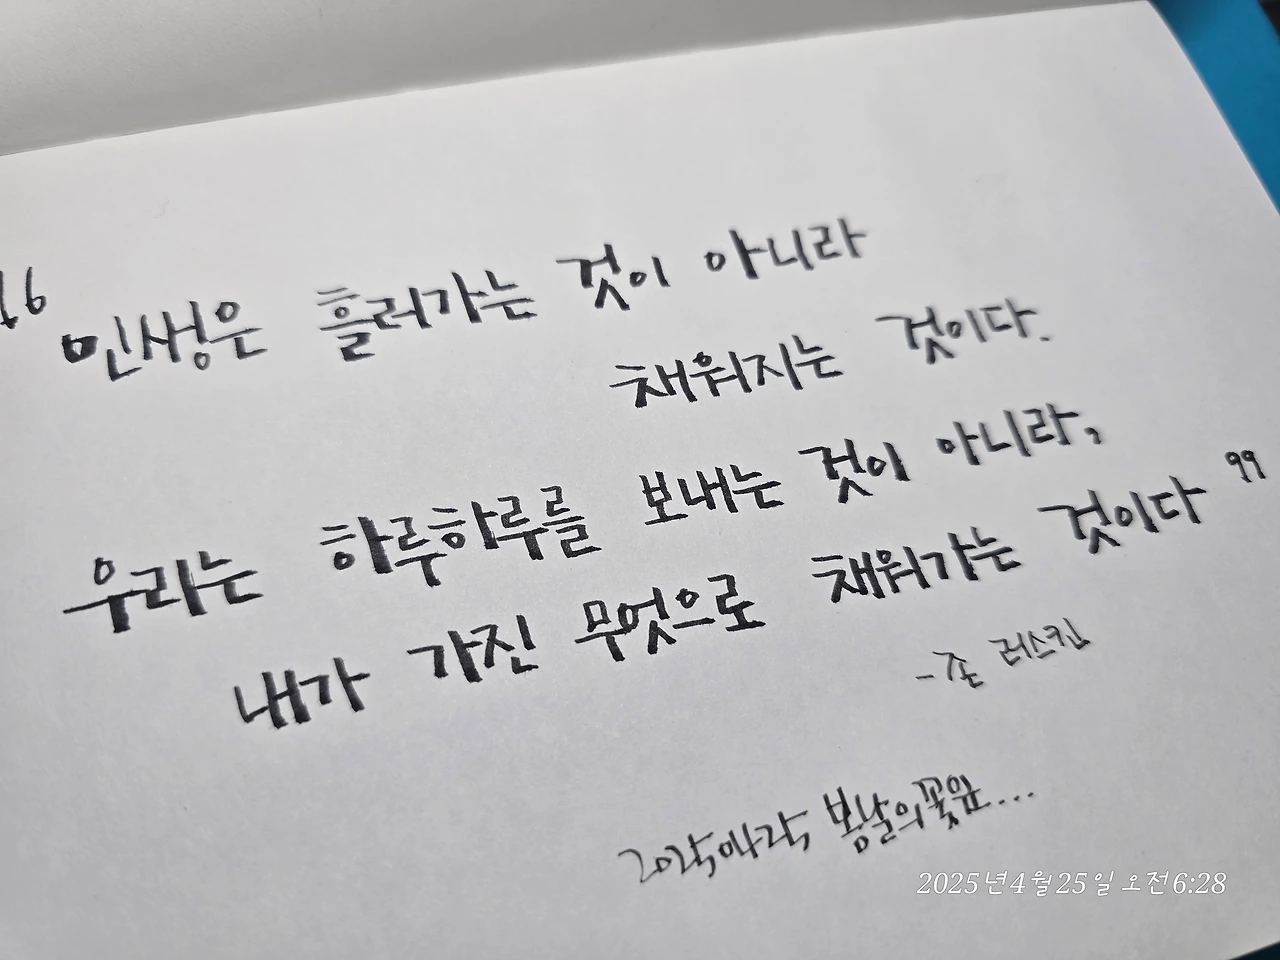 “ 인생은 흘러가는 것이 아니라
채워지는 것이다.
우리는 하루하루를 보내는 것이 아니라,
내가 가진 무엇으로 채워가는 것이다 ”
-존 러스킨
20250425 봄날의꽃잎...
2025년4월25일 오전6:28